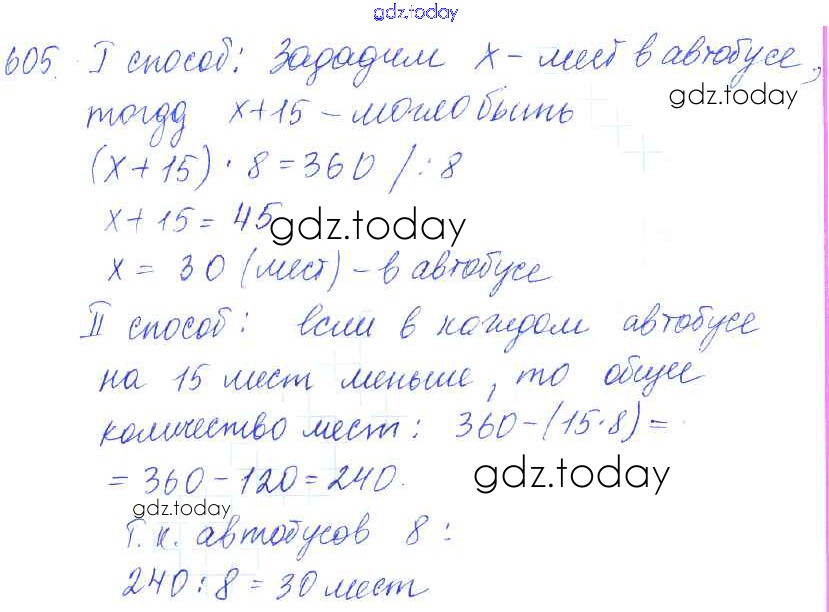 gdz.today
605. I способ: Зададим x - мест в автобусе,
gdz.today
тогда x+15 - могло быть
(x+15)·8=360 /:8
x+15=45
gdz.today
x = 30 (мест) - в автобусе
II способ: если в каждом автобусе
на 15 мест меньше, то общее
количество мест: 360-(15·8)=
=360-120=240.
gdz.today
gdz.today
Т.к. автобусов 8:
240:8=30 мест